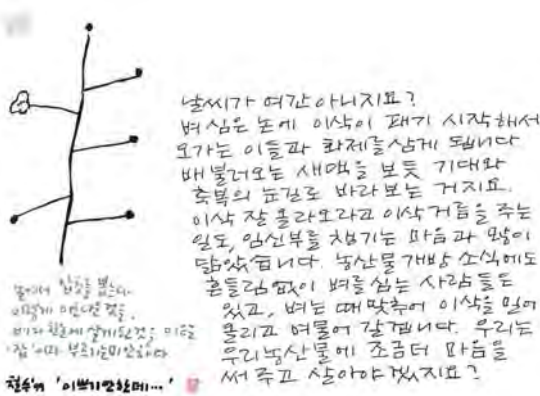 날씨가 여간 아니지요?
벼 심은 논에 이삭이 패기 시작해서
오가는 이들과 화제를 삼게 됩니다
배 불러오는 새댁을 보듯 기대와
축복의 눈길로 바라보는 거지요.
이삭 잘 올라오라고 이삭거름을 주는
일도, 임신부를 챙기는 마음과 많이
닮았습니다. 농산물 개방 소식에도
흔들림없이 벼를 심는 사람들은
있고, 벼는 때맞추어 이삭을 밀어
올리고 여물어 갈겁니다. 우리는
우리농산물에 조금더 마음을
써 주고 살아야겠지요?
논에서 잡초를 뽑는다.
이렇게 아름다운 것을,
벼와 한논에 살게된것을 이유로
'잡'이라 부르기 미안하다
철수'99 '이쁘기만한데…'